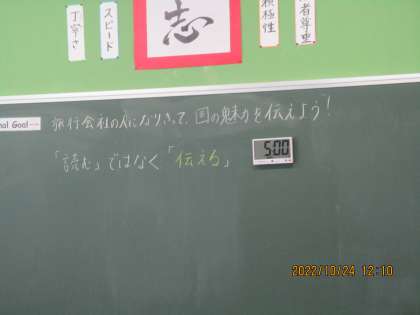 丁寧さ
スピード
志
積極性
者尊重
nal Goal
旅行会社の人になりきって、国の魅力を伝えよう!
「読む」ではなく「伝える」
5:00
2022/10/24 12:10